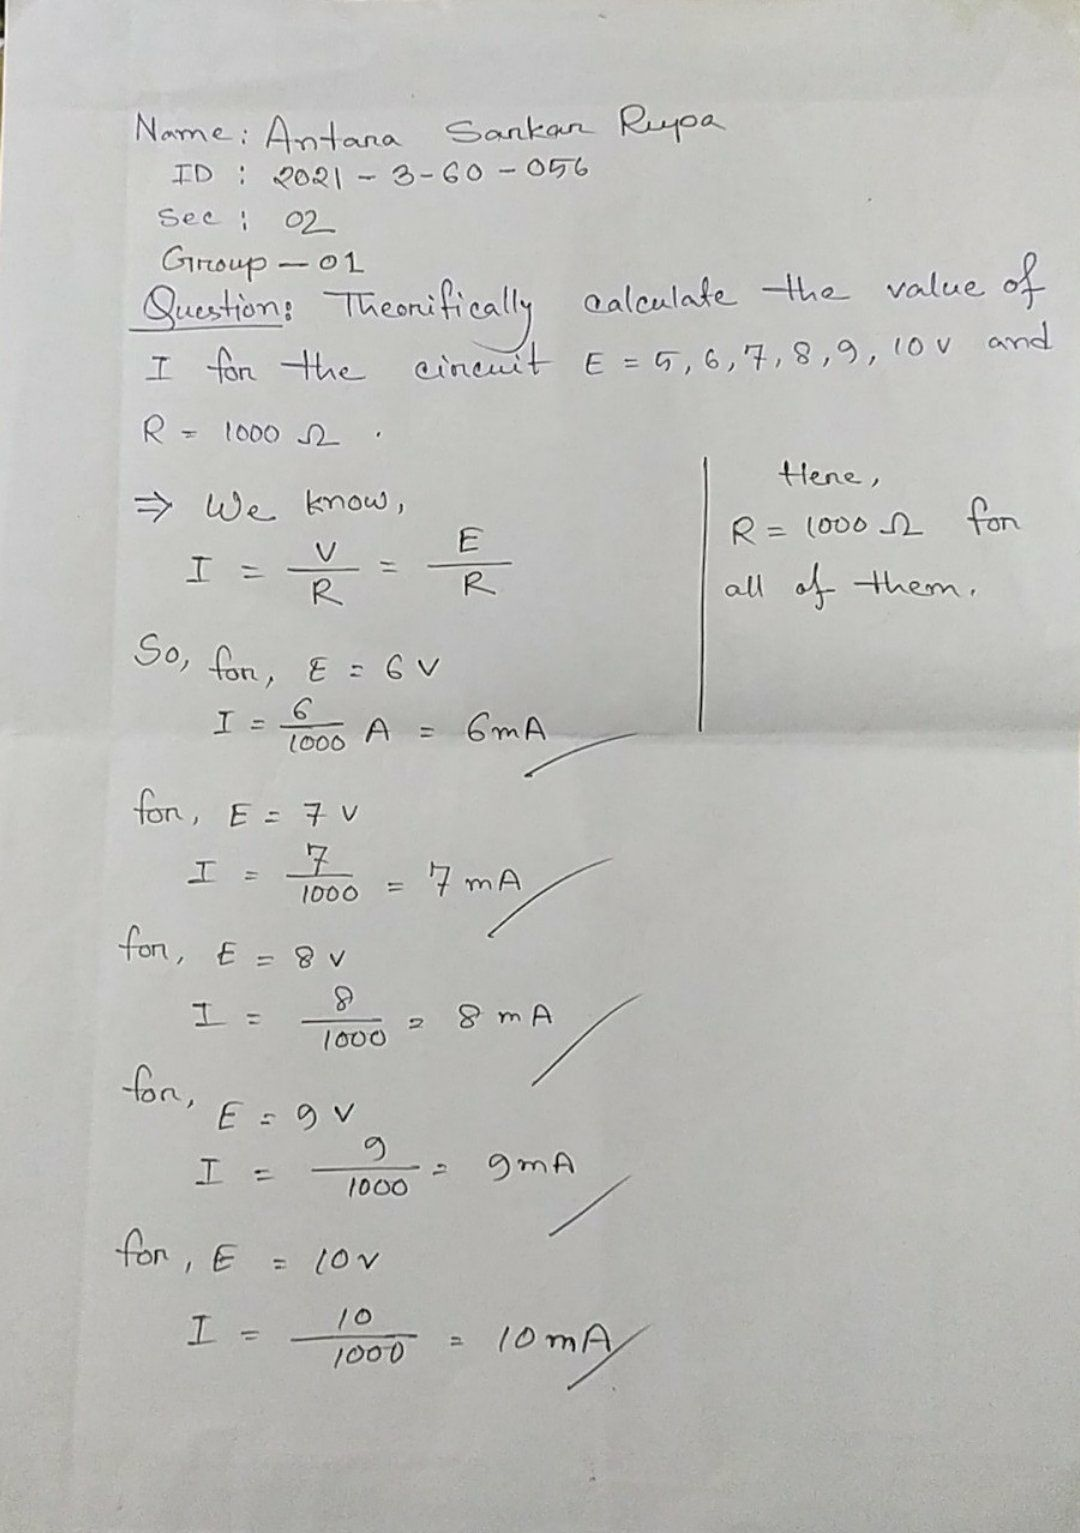 Name: Antana Sankan Rupa
ID : 2021 - 3-60 - 056
Sec : 02
Group - 01
Question: Theorifically calculate the value of
I for the circuit E = 5, 6, 7, 8, 9, 10 v and
R = 1000 Ω .
⇒ We know,
I = V/R = E/R
Here,
R = 1000 Ω for
all of them.
So, for, E = 6 V
I = 6/1000 A = 6mA
for, E = 7 V
I = 7/1000 = 7 mA
for, E = 8 v
I = 8/1000 = 8 mA
for, E = 9 V
I = 9/1000 = 9mA
for, E = 10v
I = 10/1000 = 10 mA